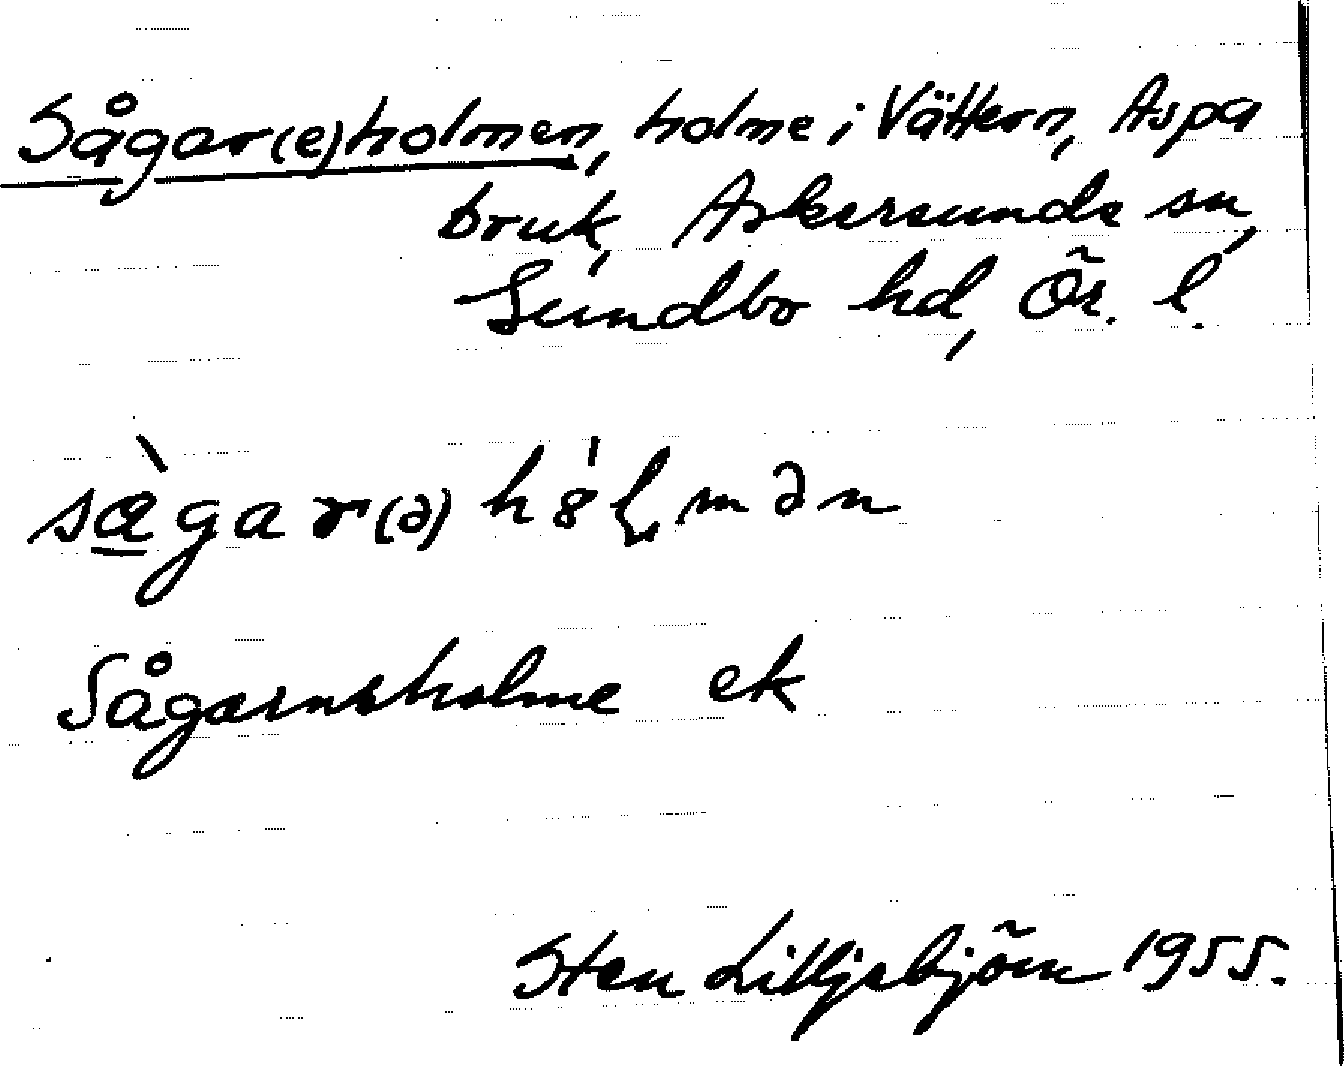 Sågar(e)holmen, holme i Vättern, Aspa
bruk, Askersunds sn,
Sundbo hd, Ör. l.
sàgar(ə)hȯ́lmən
Sågarnsholme ek
Sten Lilljebjörn 1955.